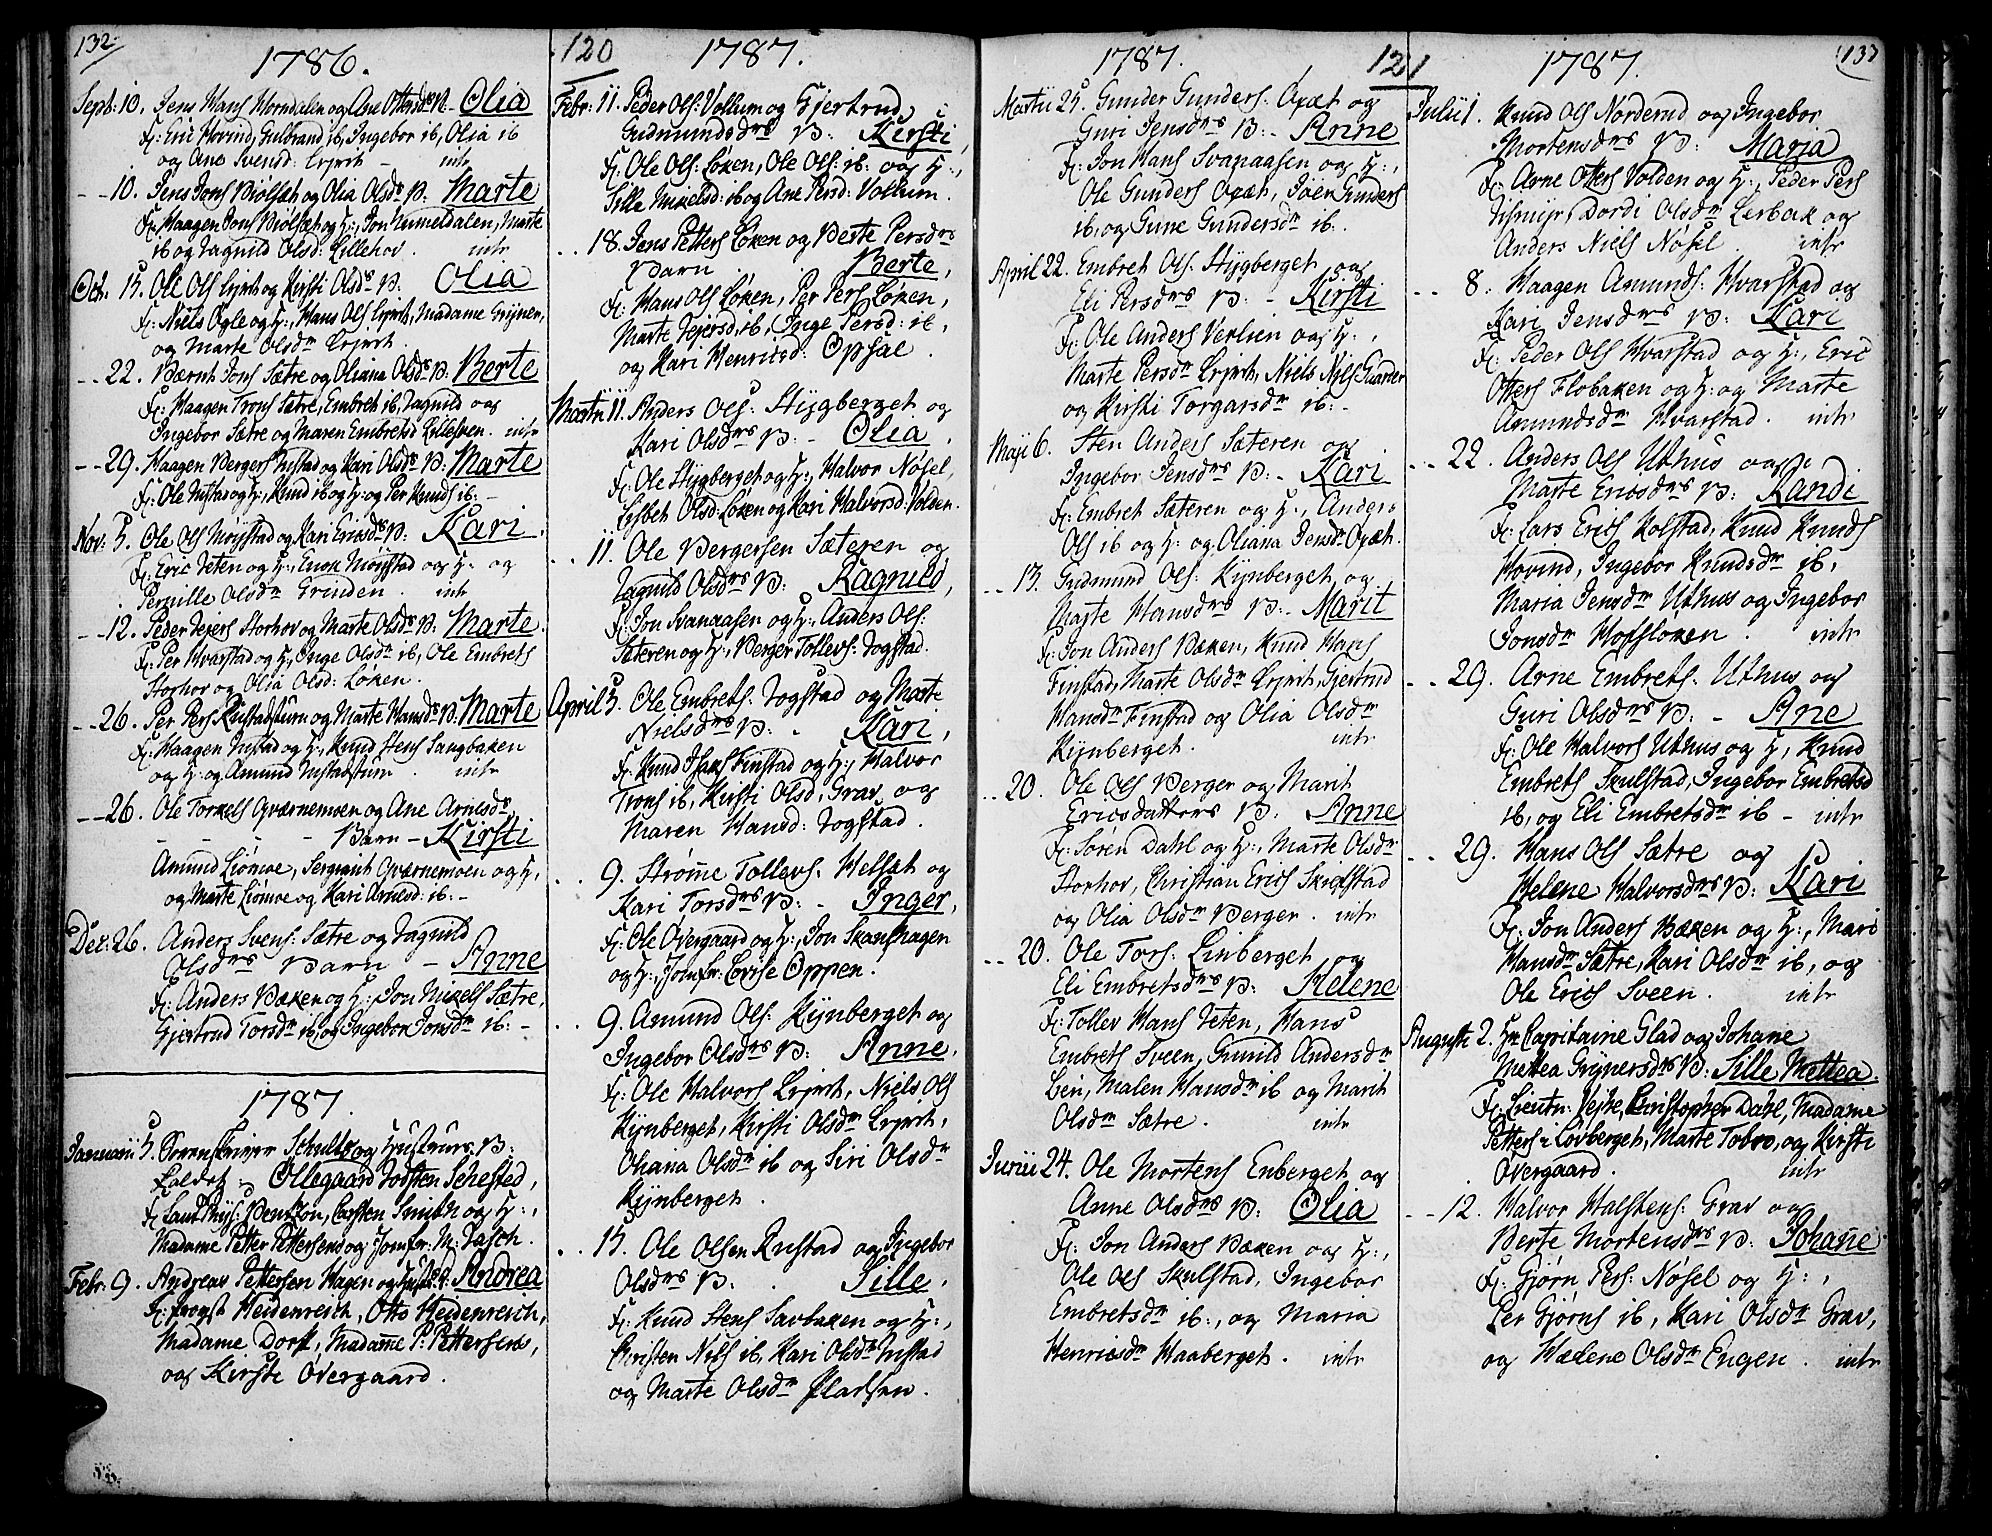 132
1786.
Sept: 10. Jens Hans Horndalen og Ane Ottersds B. Olia
F: Eric Hovind, Gulbrand ib, Ingebor ib, Olia ib
og Ane Svensd: intr
- - 10. Jens Jons Biølset og Olia Olsds B: Marte
F: Haagen Jons Biølset og H:, Jon Marte
ib og Ragnild Olsd: Lillehov. intr
Oct: 15. Ole Ols og Kirsti Olsds B. Olia
F: Niels Ogle og H:, Hans Ols Madame Grÿner,
og Marte Olsdtr
- - 22. Bærnt Jons Sætre og Oliana Olsds B: Berte
F: Haagen Trons Sætre, Embret ib, Ragnild og
Ingebor Sætre og Maren Embretsd intr
- - 29. Haagen Bergers Rustad og Kari Olsds B: Marte
F: Ole Rustad og H:, Knud ib og H: og Per Knuds ib: -
Nov: 5. Ole Ols Møystad og Kari Ericsds B: Kari.
F: Eric Teten og H:, Enok Møystad og H: og
Pernille Olsdtr Grinden. intr
- - 12. Peder Storhov og Marte Olsds B. Marte.
F: Per Kvarstad og H:, Inge Olsdtr ib, Ole Embrets
Storhov og Olia Olsd: Løken.
- - 26. Per Pers Rustadstuen og Marte Hansds B. Marte
F: Haagen Rustad og H:, Knud Stens Saugbaken
og H: og Amund Rustadstuen. intr
- - 26. Ole Torkels Qværnemoen og Ane Arnesds
Barn - Kirsti
Amund Liømoe, Sergiant Qværnemoen og H,
og Marte Liømoe og Kari Arnesd: ib: -
Dec: 26. Anders Svens: Sætre og Ragnild
Olsdtrs Barn - Anne
F: Anders Bæken og H:, Jon Mikels Sætre,
Gjertrud Torsdtr ib, og Ingebor Jonsdtr ib: -
1787.
Januarii 5. Sorenskriver Schults og Hustrues B:
kaldet Ollegaard Testen Schested,
F: Bentzon, Carsten Smith og H:,
Madame Petter Pettersens og Jomfr: M: Rasch.
Febr: 9. Andreas Pettersen Hagen og Hustr: B: Andrea
F: Heidenreich, Otto Heidenreich,
Madame Dorft, Madame P: Pettersens,
og Kirste Overgaard.
120
1787.
Febr: 11. Peder Ols: Vollum og Gjertrud
Gudmundsdtrs B: Kirsti,
F: Ole Ols: Løken, Ole Ols: ib: og H:,
Sille Mikelsd: ib og Ane Persd: Vollum.
. . 18. Jens Petters Løken og Berte Persdtrs
Barn Berte,
F: Hans Ols Løken, Per Pers Løken,
Marte Reiersd: ib, Inge Persd: ib,
og Kari Henricsd: Opsal.
Martii 11. Anders Ols: Stygberget og
Kari Olsdtrs B: - Olia.
F: Ole Stygberget og H:, Halvor Nøsel,
Lisbet Olsd: Løken og Kari Halvorsd: Volden.
. . 11. Ole Bergersen Sæteren og
Ragnild Olsdtrs B: Ragnild,
F: Jon Svanaasen og H:, Anders Ols:
Sæteren og H:, Berger Tollevs: Rogstad.
April 5. Ole Embrets: Rogstad og Marte
Nielsdtrs B: Kari,
F: Knud Isaks Finstad og H:, Halvor
Trons ib, Kirsti Olsd, Grav, og
Maren Hansd: Rogstad.
. . 9. Strøme Tollevs: Helset og
Kari Torsdtrs B: - Inger,
F: Ole Overgaard og H:, Jon Skanshagen
og H:, Jomfr: Lovise Oppen.
. . 9. Amund Ols: Kynberget og
Ingebor Olsdtrs B: Anne.
F: Ole Halvors Niels Ols
Kynberget, Kirsti Olsdtr
Oliana Olsdtr ib og Siri Olsdtr
Kynberget.
. . 15. Ole Olsen Rustad og Ingebor
Olsdtrs B: Sille.
F: Knud Stens Savbaken og H:,
Christen Nils ib, Kari Olsdtr Rustad
og Marte Olsdtr Pladsen.
1787.
121
Martii 25. Gunder Gunders: Opæt og
Guri Jensdtrs B: - Anne
F: Jon Hans Svanaasen og H:,
Ole Gunders Opæt, Joen Gunders
ib, og Gune Gundersdtr ib:.
April 22. Embret Ols: Stygberget og
Eli Persdtrs B: - Kirsti
F: Ole Anders Verlien og H:,
Marte Persdtr Niels Niels Guarder
og Kirsti Torgarsdtr ib: -
Maji 6. Sten Anders Sæteren og
Ingebor Jensdtrs B: - Kari
F: Embret Sæteren og H:, Anders
Ols ib og H: og Oliana Jensdtr Opæt.
. . 13. Gudmund Ols: Kynberget og
Marte Hansdtrs B: - Marit
F: Jon Anders Bæken, Knud Hans
Finstad, Marte Olsdtr Gjertrud
Hansdtr Finstad og Olia Olsdtr
Kynberget. intr
. . 20. Ole Ols Berger og Marit
Ericsdatters B: Anne
F: Søren Dahl og H:, Marte Olsdtr
Storhov, Christian Erics Skielstad
og Olia Olsdtr Berger. intr
. . 20. Ole Tors: Linberget og
Eli Embretsdtrs B: Helene
F: Tollev Hans Teten, Hans
Embrets Sveen, Gunild Andersdtr
Lien, Malen Hansdtr ib og Marit
Olsdtr Sætre. intr
Junii 24. Ole Mortens Enberget og
Anne Olsdtrs B: Olia
F: Jon Anders Bæken og H:,
Ole Ols Skulstad, Ingebor
Embretsdtr ib:, og Maria
Henricsdtr Haaberget. intr
1787.
133
Julii 1. Knud Ols Norderud og Ingebor
Mortensdtrs B: Maria
F: Arne Otters Volden og H:, Peder Pers
Dordi Olsdtr Lerbak og
Anders Niels Nøsel. intr
. . 8. Haagen Amunds: Kvarstad og
Kari Jensdtrs B: Kari
F: Peder Ols Kvarstad og H:, Eric
Otters Flobaken og H: og Marte
Amundsdtr Kvarstad. intr
. . 22. Anders Ols Uthus og
Marte Ericsdtrs B: Randi
F: Lars Erics Kolstad, Knud Knuds
Hovind, Ingebor Knudsdtr ib,
Maria Jensdtr Uthus og Ingebor
Jonsdtr Hofsløken. intr
. . 29. Arne Embrets: Uthus og
Guri Olsdtrs B: - Ane
F: Ole Halvors Uthus og H, Knud
Embrets Skulstad, Ingebor Embretsd
ib, og Eli Embretsdtr ib - intr
. . 29. Hans Ols Sætre og
Helene Halvorsdtrs B: Kari
F: Jon Anders Bæken og H:, Mari
Hansdtr Sætre, Kari Olsdtr ib, og
Ole Erics Sveen. intr
Augusti 2. Hr Capitaine Glad og Johane
Mettea Grÿnersdtrs B: Sille Mettea.
F: Lieutn: Christopher Dahl, Madame
Petters i Lovberget, Marte og Kirsti
Overgaard. intr
. . 12. Halvor Halstens: Grav og
Berte Mortensdtrs B: Johane
F: Gjørn Pers: Nøsel og H:,
Per Gjørns ib, Kari Olsdtr Grav,
og Helene Olsdtr Engen. intr